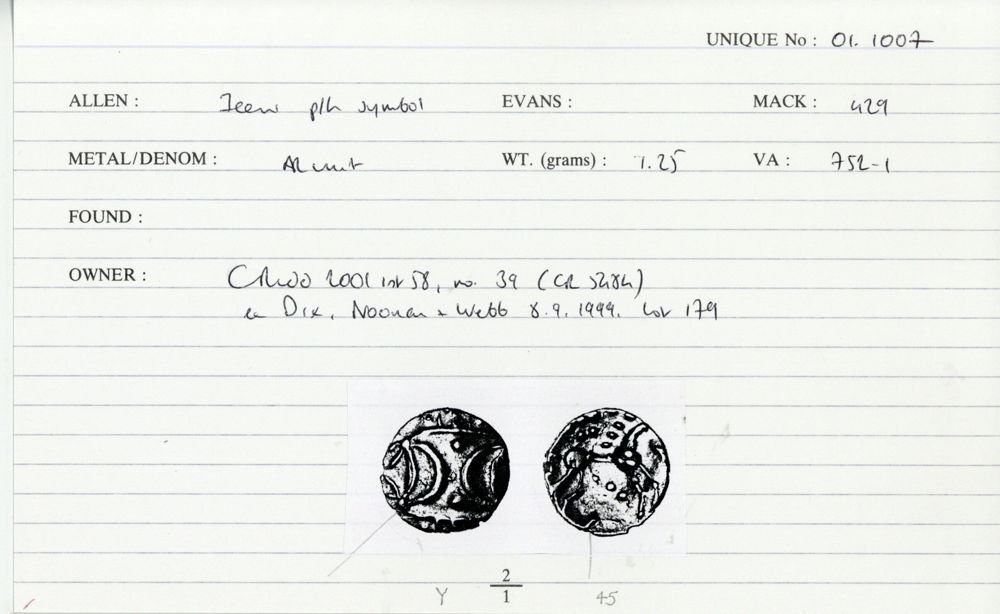 UNIQUE No : 01. 1007
ALLEN : Iceni p/h symbol EVANS : MACK : 429
METAL/DENOM : AR unit WT. (grams) : 1.25 VA : 752-1
FOUND :
OWNER : 2001 list 58, no. 39 (CR
ex Dix, Noonan & Webb 8.9.1999. lot 179
Y 2/1 45